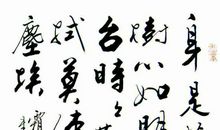 身是
樹心如明
台時々
拭莫使
塵埃